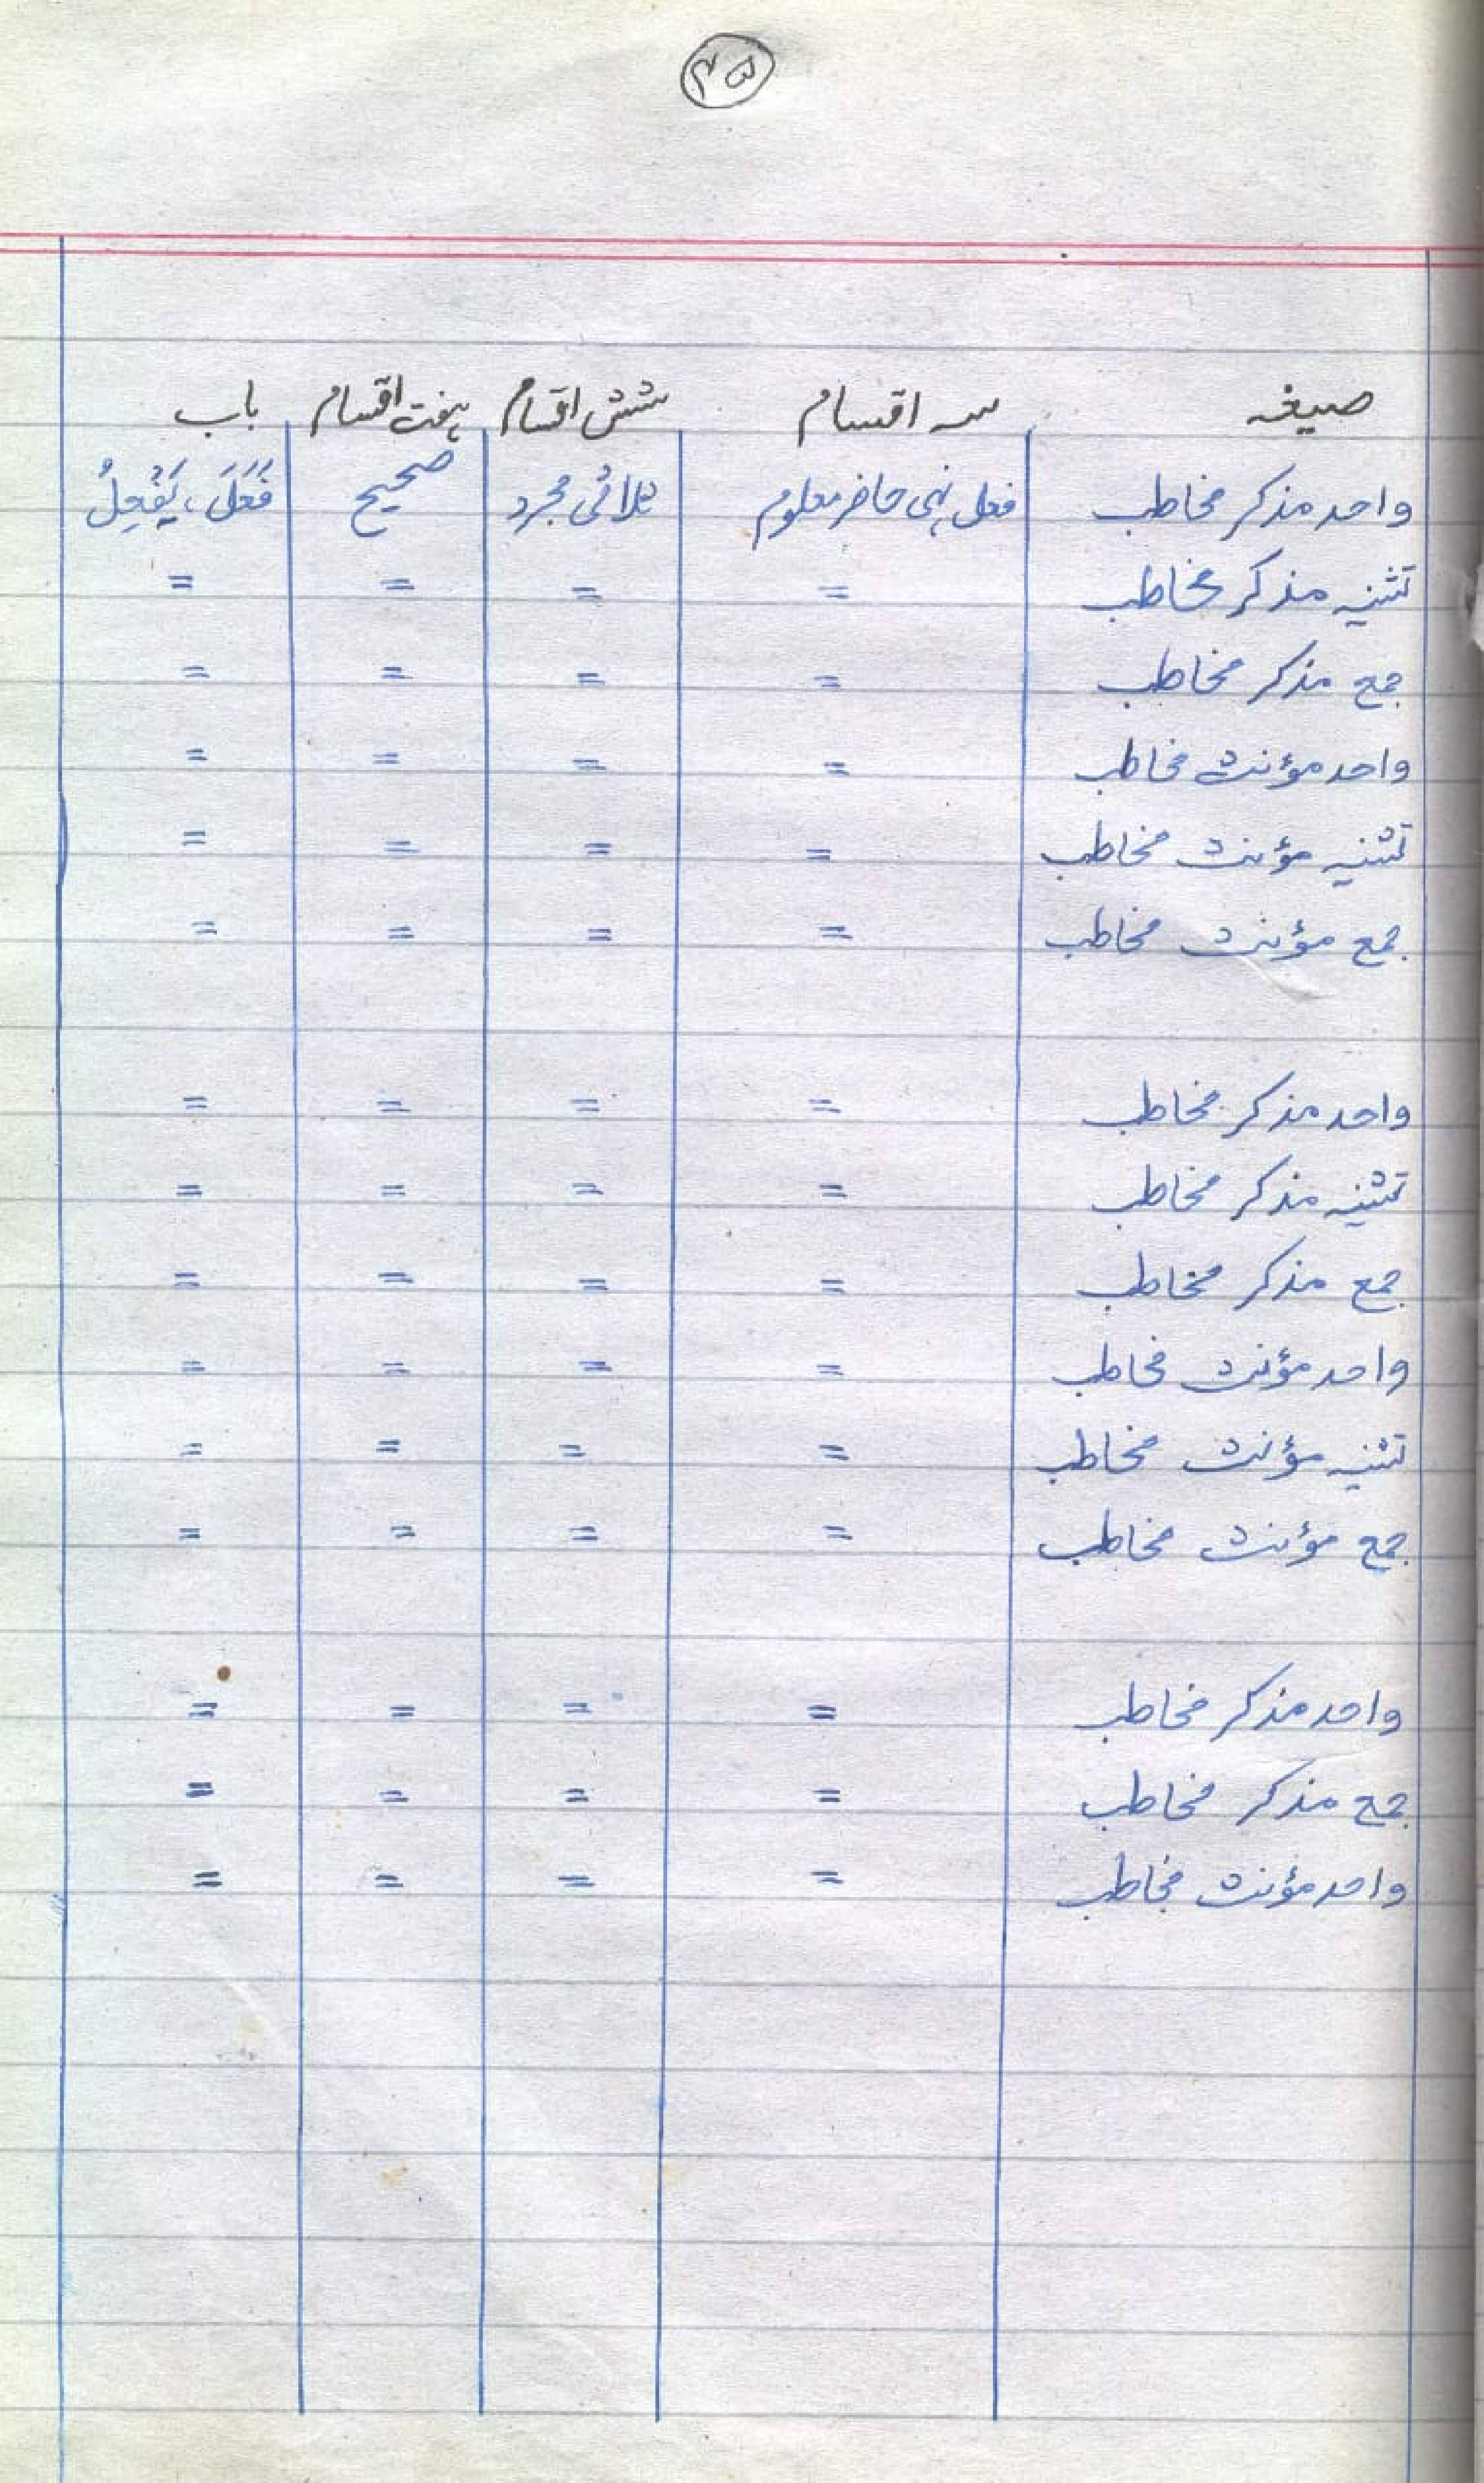 ۴۵
صیغہ سہ اقسام شش اقسام ہفت اقسام باب
واحد مذکر مخاطب فعل نہی حاضر معلوم ثلاثی مجرد صحیح فَعَلَ، یَفْعِلُ
تثنیہ مذکر مخاطب = = = =
جمع مذکر مخاطب = = = =
واحد مؤنث مخاطب = = = =
تثنیہ مؤنث مخاطب = = = =
جمع مؤنث مخاطب = = = =
واحد مذکر مخاطب = = = =
تثنیہ مذکر مخاطب = = = =
جمع مذکر مخاطب = = = =
واحد مؤنث مخاطب = = = =
تثنیہ مؤنث مخاطب = = = =
جمع مؤنث مخاطب = = = =
واحد مذکر مخاطب = = = =
جمع مذکر مخاطب = = = =
واحد مؤنث مخاطب = = = =